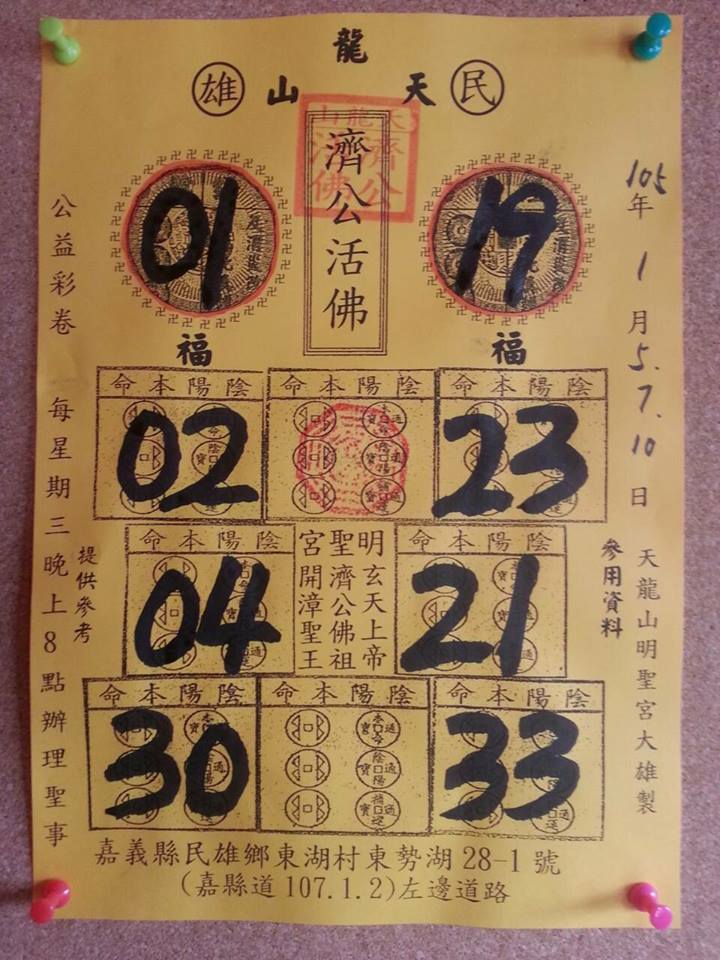 龍
雄 山 天 民
天龍山
濟公
活佛
濟公活佛
01
19
福
福
105年1月5.7.10日
公益彩卷 每星期三晚上8點辦理聖事
提供參考
命本陽陰
命本陽陰
命本陽陰
02
23
命本陽陰
宮聖明
命本陽陰
玄天上帝
濟公佛祖
開漳聖王
04
21
參用資料
天龍山明聖宮大雄製
命本陽陰
命本陽陰
命本陽陰
30
33
嘉義縣民雄鄉東湖村東勢湖28-1號
(嘉縣道107.1.2)左邊道路